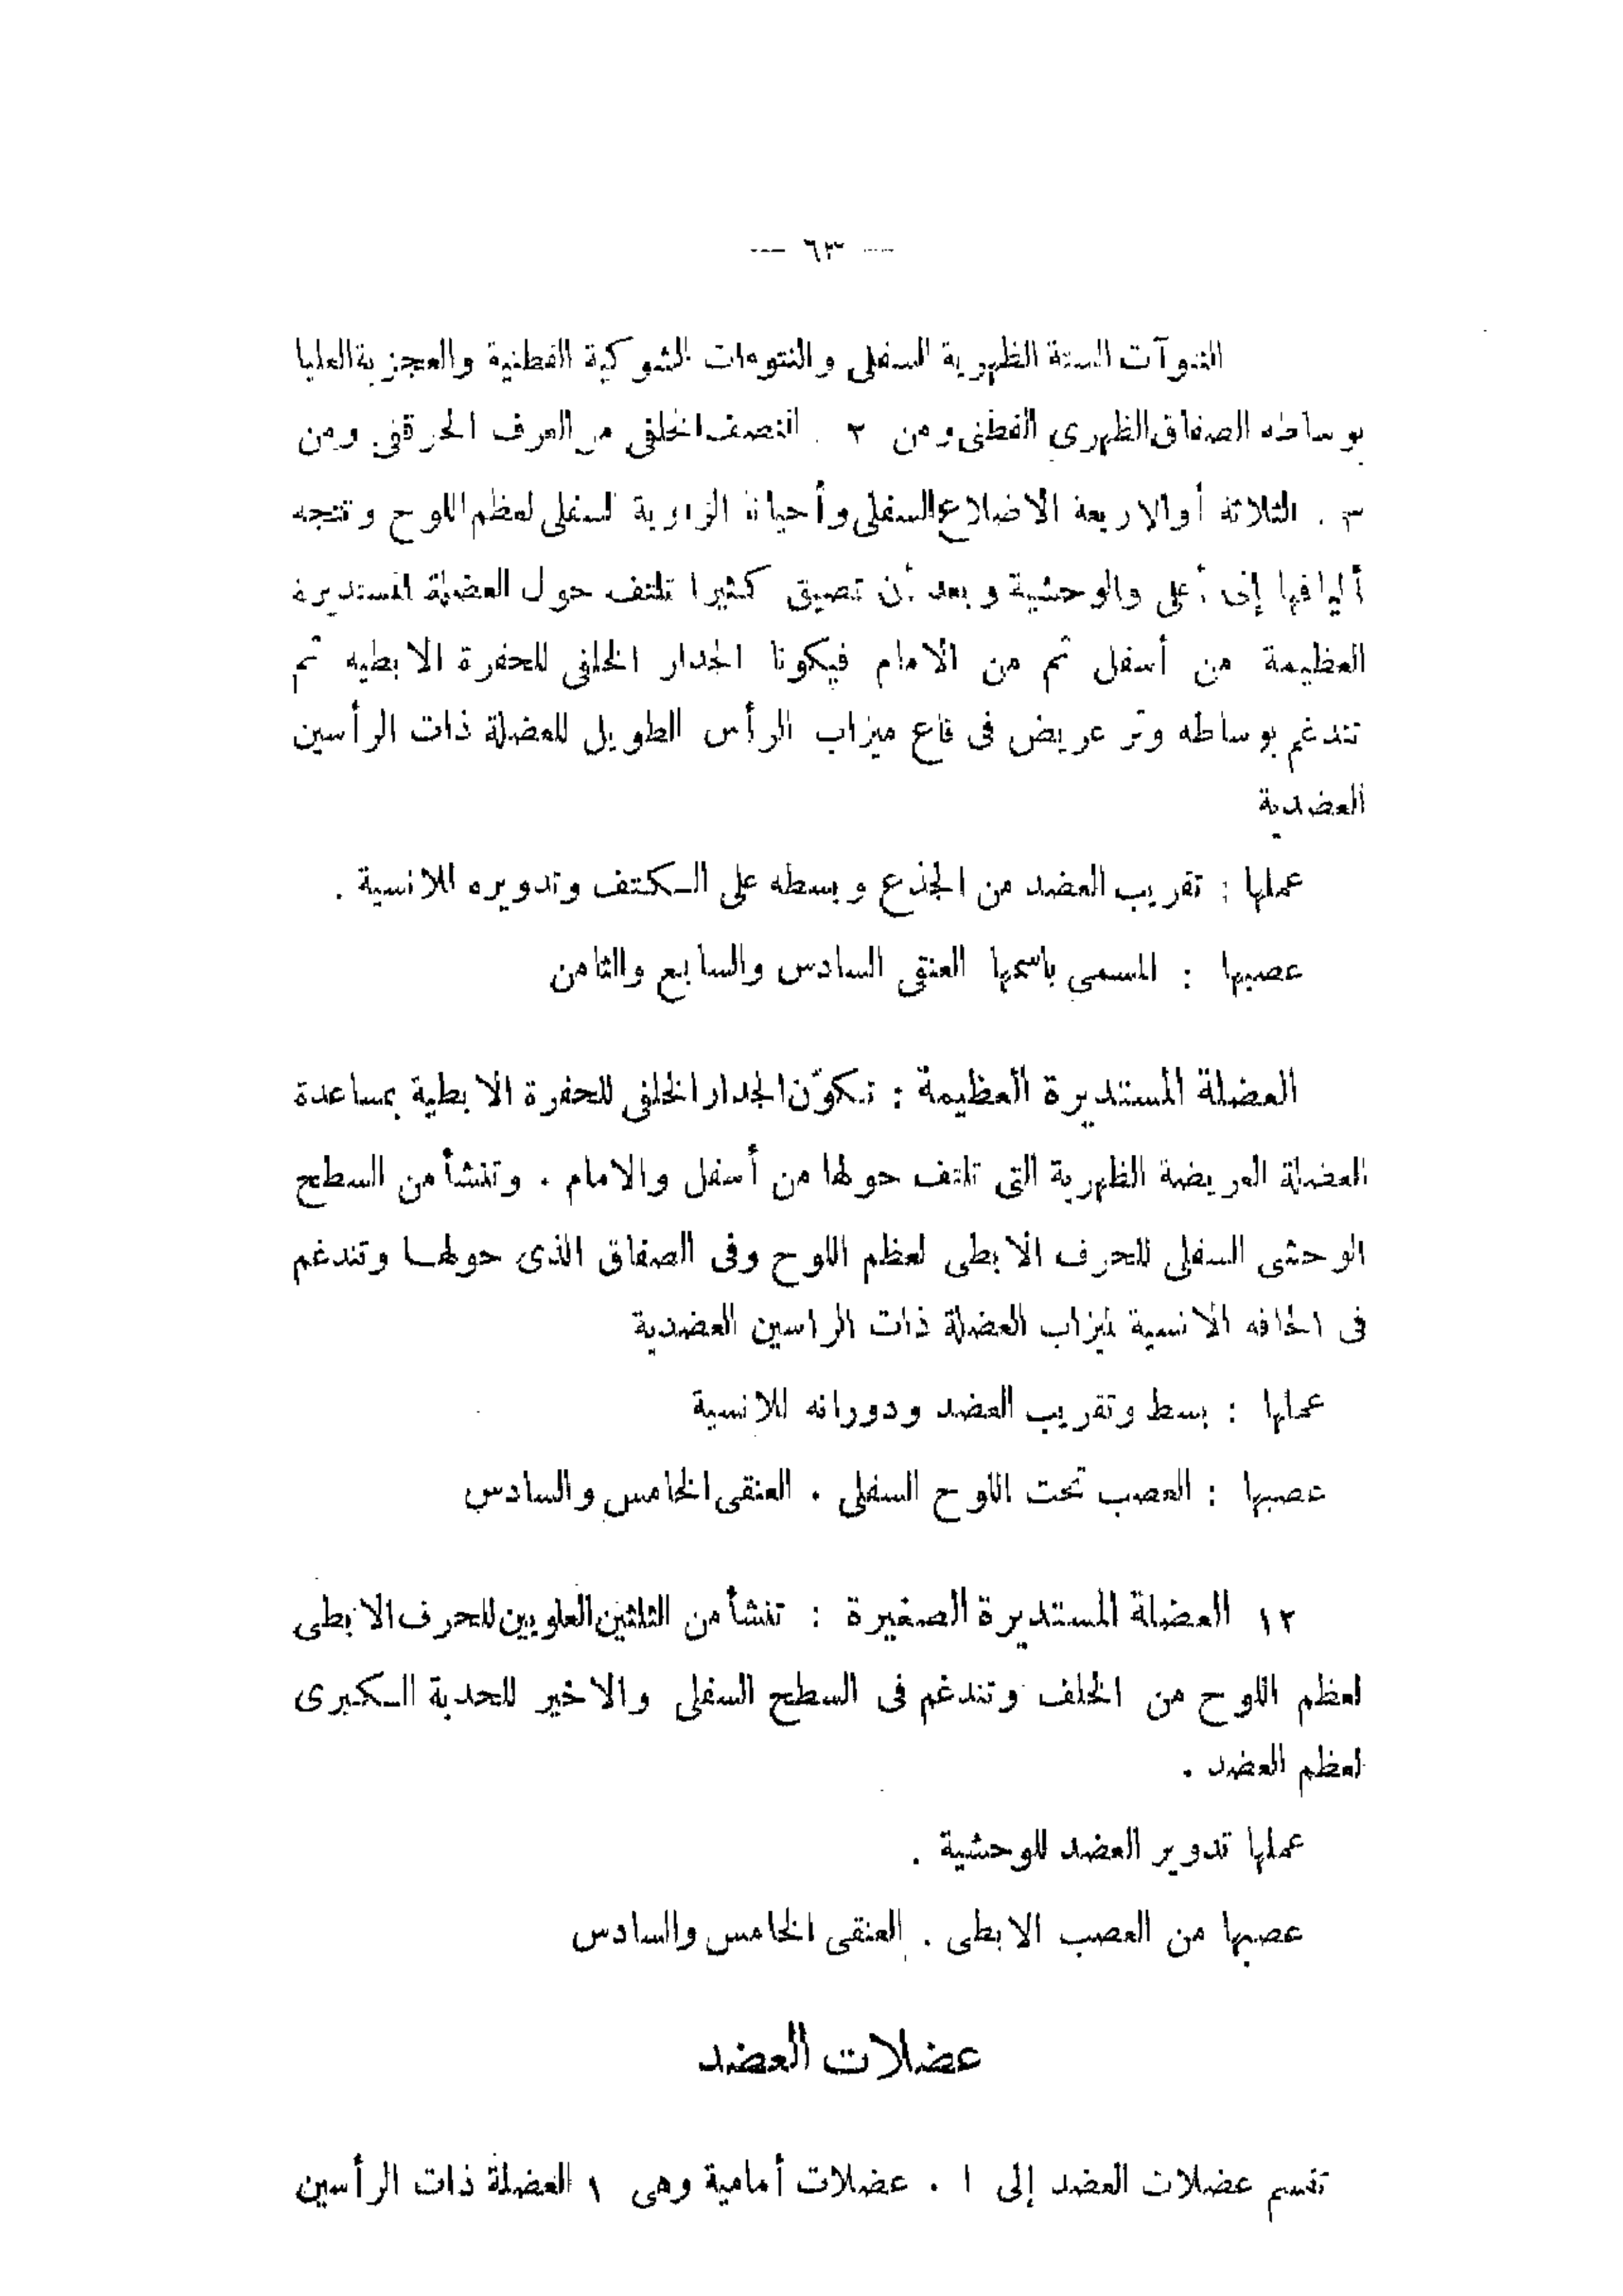 — ٦٣ —
النتوآت الستة الظهرية السفلى والنتوءات الشوكية القطنية والعجزية العليا
بوساطه الصفاق الظهرى القطنى ومن ٢ . النصف الخلفى من العرف الحرقفى ومن
٣ . الثلاثة أو الاربعة الاضلاع السفلى وأحيانا الزاوية السفلى لعظم اللوح وتتجه
أليافها إلى أعلى والوحشية وبعد أن تضيق كثيرا تلتف حول العضلة المستديرة
العظيمة من أسفل ثم من الامام فيكونا الجدار الخلفى للحفرة الابطيه ثم
تندغم بوساطه وتر عريض فى قاع ميزاب الرأس الطويل للعضلة ذات الرأسين
العضدية
عملها : تقريب العضد من الجذع وبسطه على الكتف وتدويره للانسية .
عصبها : المسمى باسمها العنقى السادس والسابع والثامن
العضلة المستديرة العظيمة : تكوّن الجدار الخلفى للحفرة الابطية بمساعدة
العضلة العريضة الظهرية التى تلتف حولها من أسفل والامام . وتنشأ من السطح
الوحشى السفلى للحرف الابطى لعظم اللوح وفى الصفاق الذى حولها وتندغم
فى الحافه الانسية لميزاب العضلة ذات الراسين العضدية
عملها : بسط وتقريب العضد ودورانه للانسية
عصبها : العصب تحت اللوح السفلى . العنقى الخامس والسادس
١٢ العضلة المستديرة الصغيرة : تنشأ من الثلثين العلويين للحرف الابطى
لعظم اللوح من الخلف وتندغم فى السطح السفلى والاخير للحدبة الكبرى
لعظم العضد .
عملها تدوير العضد للوحشية .
عصبها من العصب الابطى . العنقى الخامس والسادس
عضلات العضد
تقسم عضلات العضد إلى ا . عضلات أمامية وهى ١ العضلة ذات الرأسين